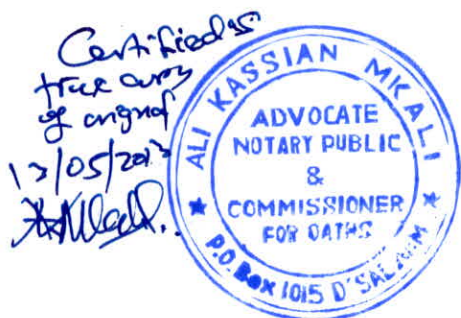 Certified as
true copy
of original
13/05/2013
ALI KASSIAN MKALI
ADVOCATE
NOTARY PUBLIC
&
COMMISSIONER
FOR OATHS
P.O. Box 1015 D'SALAAM